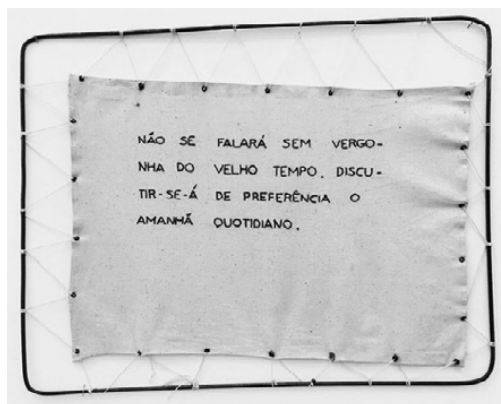 NÃO SE FALARÁ SEM VERGO-
NHA DO VELHO TEMPO. DISCU-
TIR-SE-Á DE PREFERÊNCIA O
AMANHÃ QUOTIDIANO.